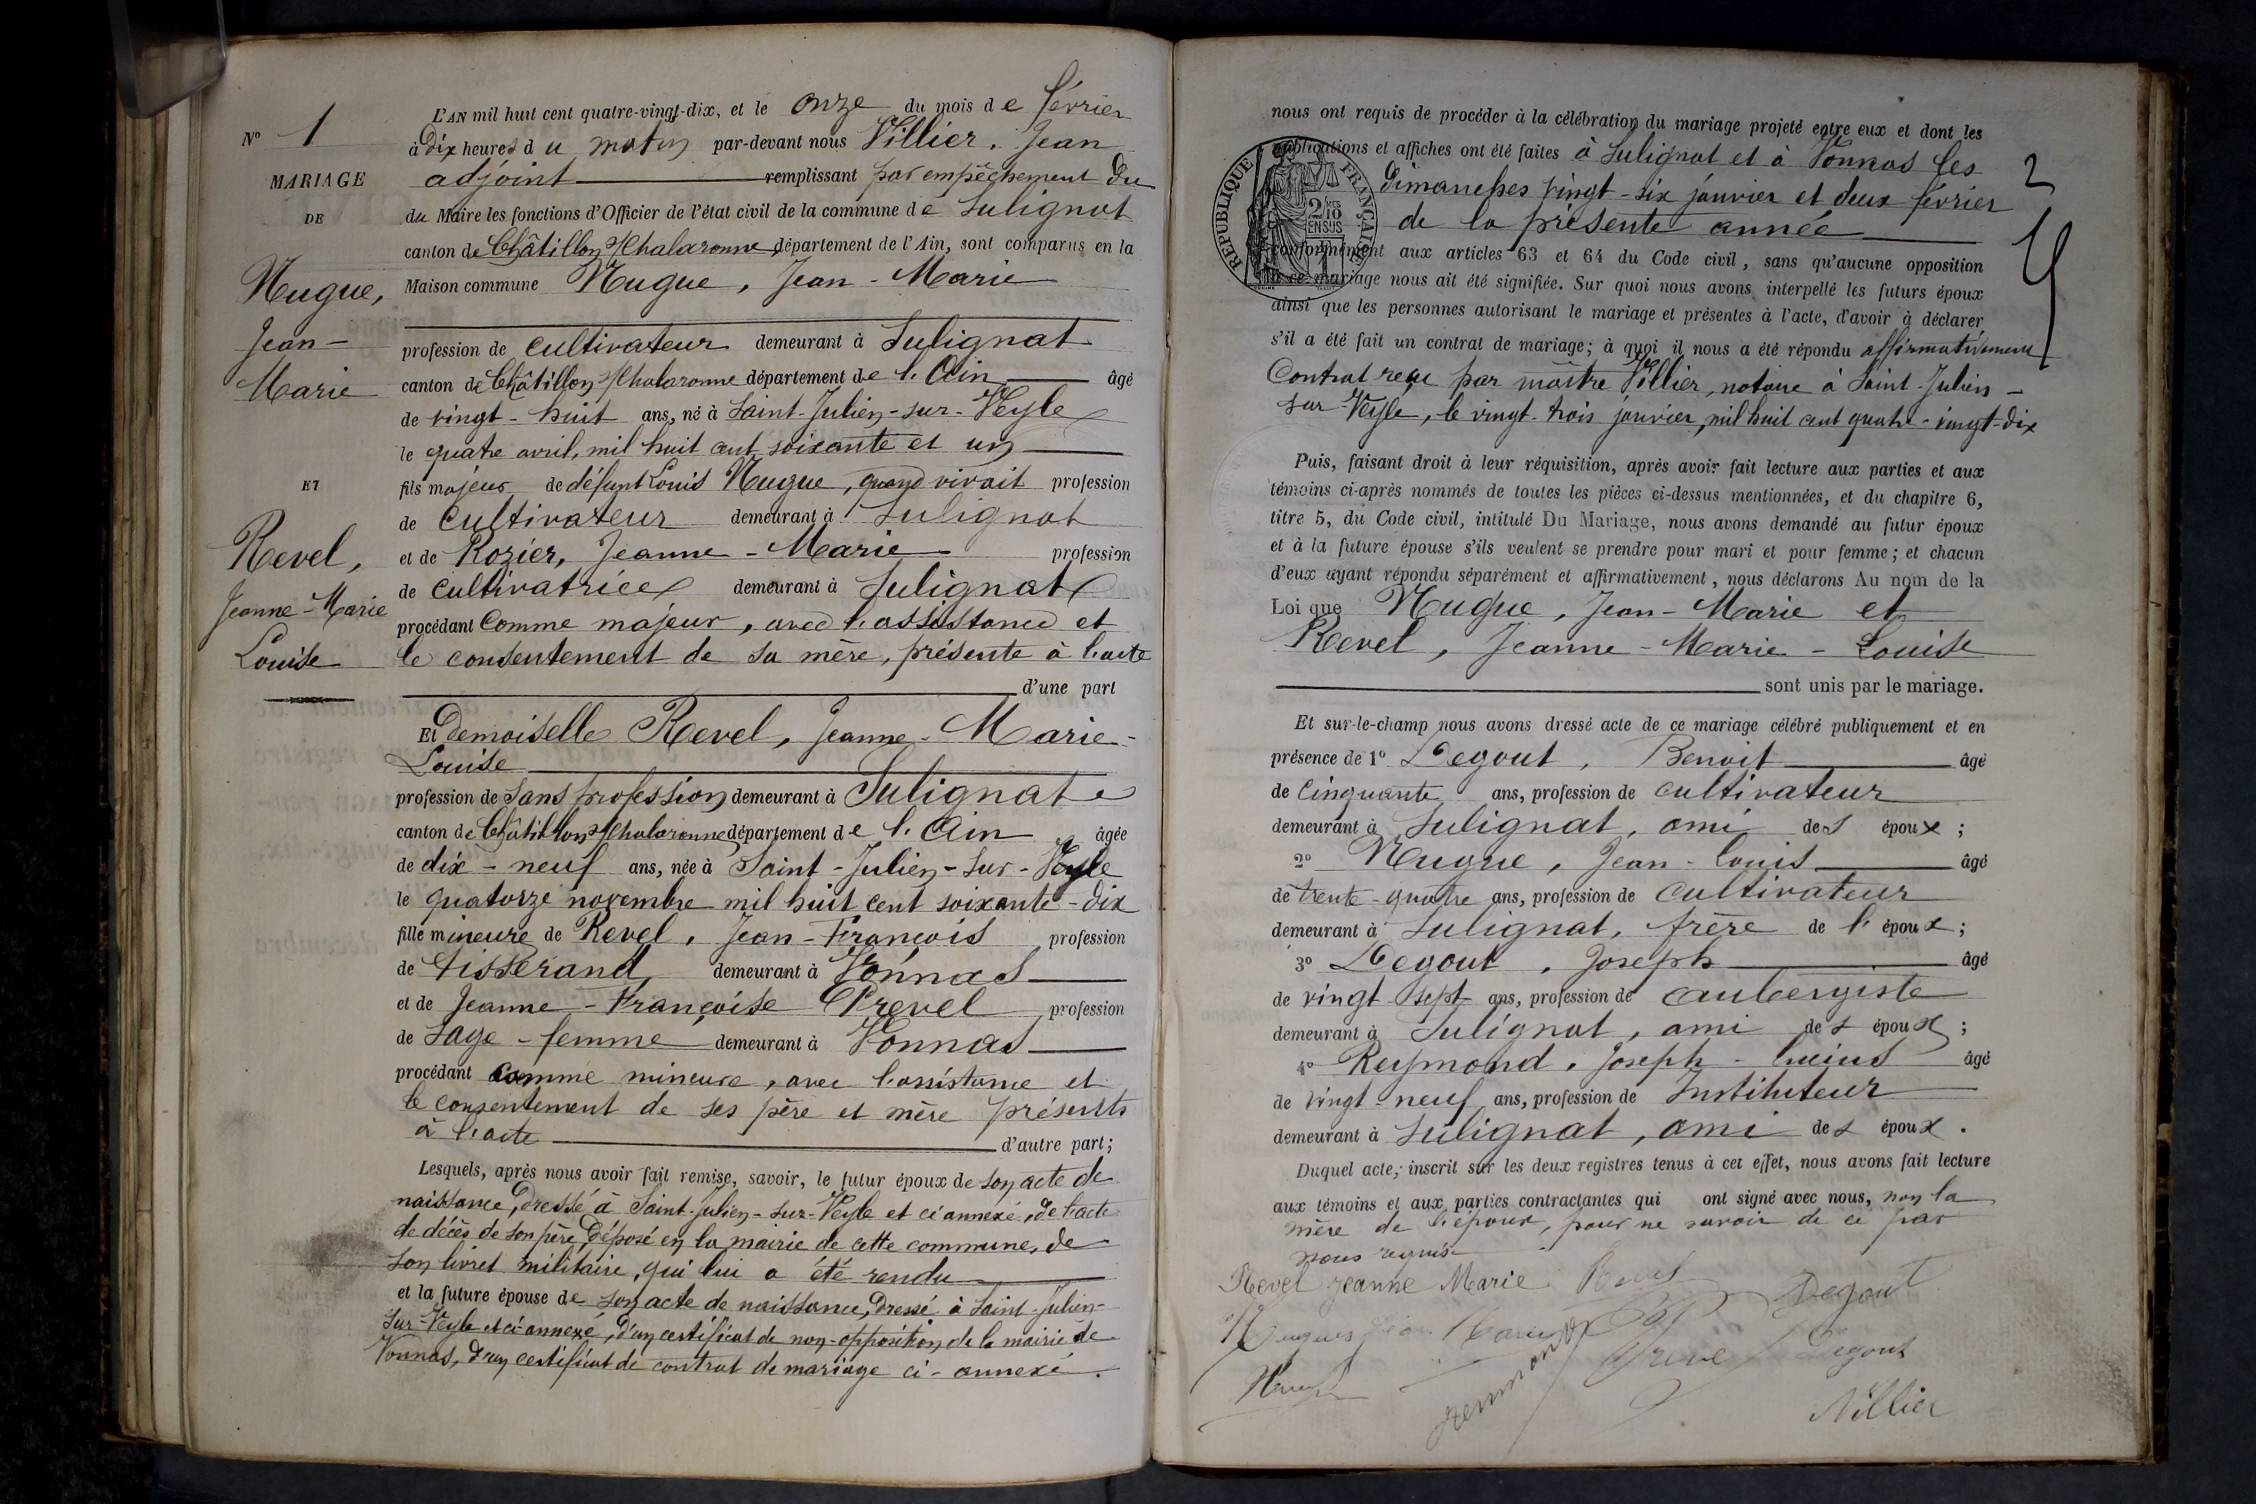 L'AN mil huit cent quatre-vingt-dix, et le onze du mois de février
N° 1
à dix heures du matin par-devant nous Villier, Jean
MARIAGE
adjoint remplissant par empêchement du
DE
du Maire les fonctions d'Officier de l'état civil de la commune de Sulignat
canton de Châtillon s/Chalaronne département de l'Ain, sont comparus en la
Nugue,
Maison commune Nugue, Jean-Marie
Jean-
profession de cultivateur demeurant à Sulignat
Marie
canton de Châtillon s/Chalaronne département de l'Ain âgé
de vingt-huit ans, né à Saint-Julien-sur-Veyle
le quatre avril, mil huit cent soixante et un
ET
fils majeur de défunt Louis Nugue, quand vivait profession
de cultivateur demeurant à Sulignat
Revel,
et de Rozier, Jeanne-Marie profession
Jeanne-Marie
de cultivatrice demeurant à Sulignat
procédant comme majeur, avec l'assistance et
Louise
le consentement de sa mère, présente à l'acte
d'une part
Et Demoiselle Revel, Jeanne-Marie-
Louise
profession de sans profession demeurant à Sulignat
canton de Châtillon s/Chalaronne département de l'Ain âgée
de dix-neuf ans, née à Saint-Julien-sur-Veyle
le quatorze novembre mil huit cent soixante-dix
fille mineure de Revel, Jean-François profession
de tisserand demeurant à Vonnas
et de Jeanne-Françoise Prevel profession
de sage-femme demeurant à Vonnas
procédant comme mineure, avec l'assistance et
le consentement de ses père et mère présents
à l'acte d'autre part;
Lesquels, après nous avoir fait remise, savoir, le futur époux de son acte de
naissance, dressé à Saint-Julien-sur-Veyle et ci annexé, de l'acte
de décès de son père, déposé en la mairie de cette commune, de
son livret militaire, qui lui a été rendu
et la future épouse de son acte de naissance, dressé à Saint-Julien-
sur-Veyle et ci-annexé, d'un certificat de non-opposition de la mairie de
Vonnas, d'un certificat de contrat de mariage ci-annexé.
nous ont requis de procéder à la célébration du mariage projeté entre eux et dont les
publications et affiches ont été faites à Sulignat et à Vonnas les
2
dimanches vingt-six janvier et deux février
de la présente année
RÉPUBLIQUE FRANÇAISE
2/10 EN SUS
conformément aux articles 63 et 64 du Code civil, sans qu'aucune opposition
à ce mariage nous ait été signifiée. Sur quoi nous avons interpellé les futurs époux
ainsi que les personnes autorisant le mariage et présentes à l'acte, d'avoir à déclarer
s'il a été fait un contrat de mariage; à quoi il nous a été répondu affirmativement
Contrat reçu par maître Villier, notaire à Saint-Julien-
sur Veyle, le vingt-trois janvier, mil huit cent quatre-vingt-dix
Puis, faisant droit à leur réquisition, après avoir fait lecture aux parties et aux
témoins ci-après nommés de toutes les pièces ci-dessus mentionnées, et du chapitre 6,
titre 5, du Code civil, intitulé Du Mariage, nous avons demandé au futur époux
et à la future épouse s'ils veulent se prendre pour mari et pour femme; et chacun
d'eux ayant répondu séparément et affirmativement, nous déclarons Au nom de la
Loi que Nugue, Jean-Marie et
Revel, Jeanne-Marie-Louise
sont unis par le mariage.
Et sur-le-champ nous avons dressé acte de ce mariage célébré publiquement et en
présence de 1° Degout, Benoit âgé
de cinquante ans, profession de cultivateur
demeurant à Sulignat, ami des époux;
2° Nugue, Jean-Louis âgé
de trente-quatre ans, profession de cultivateur
demeurant à Sulignat, frère de l'époux;
3° Degout, Joseph âgé
de vingt-sept ans, profession de aubergiste
demeurant à Sulignat, ami des époux;
4° Reymond, Joseph-Lucius âgé
de vingt-neuf ans, profession de Instituteur
demeurant à Sulignat, ami des époux.
Duquel acte, inscrit sur les deux registres tenus à cet effet, nous avons fait lecture
aux témoins et aux parties contractantes qui ont signé avec nous, non la
mère de l'époux, pour ne savoir de ce par
nous requise
Revel Jeanne Marie Revel Degout
Nugues Jean Marie
Prevel Degout
Reymond
Villier